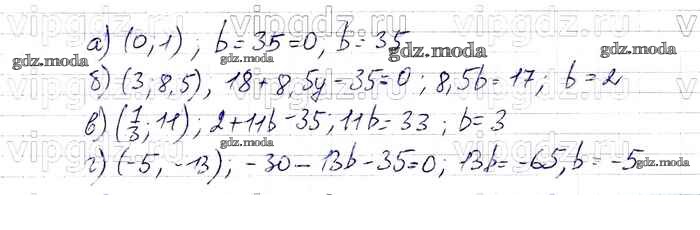 vipgdz.ru vipgdz.ru vipgdz.ru
а) (0, 1) ; b = 35 = 0, b = 35
gdz.moda gdz.moda gdz.moda
б) (3; 8,5), 18 + 8,5y - 35 = 0 ; 8,5b = 17; b = 2
vipgdz.ru vipgdz.ru vipgdz.ru
в) (1/3; 11); 2 + 11b - 35; 11b = 33 ; b = 3
г) (-5, -13); -30 - 13b - 35 = 0; 13b = -65, b = -5
gdz.moda gdz.moda gdz.moda